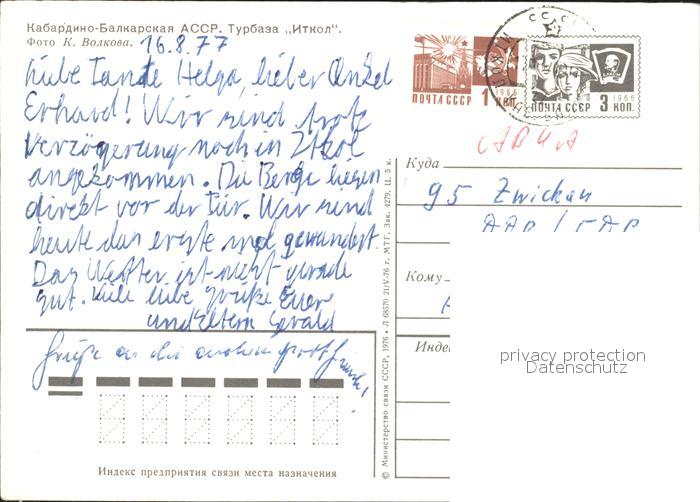 Кабардино-Балкарская АССР. Турбаза „Иткол".
Фото К. Волкова.
16.8.77
Liebe Tante Helga, lieber Onkel
Erhard! Wir sind trotz
Verzögerung noch in Itkol
angekommen. Die Berge liegen
direkt vor der Tür. Wir sind
heute das erste mal gewandert.
Das Wetter ist nicht gerade
gut. Viele liebe Grüße Euer
und Eltern Gerald
Grüße an die anderen
ПОЧТА СССР 1 КОП. 1966
ПОЧТА СССР 3 КОП. 1966
АВИА
Куда
95 Zwickau
ДДР / ГДР
Кому
Инде
privacy protection
Datenschutz
Индекс предприятия связи места назначения
© Министерство связи СССР, 1976 • Л 68570 21/V-76 г. МТГ. Зак. 4279. Ц. 5 к.